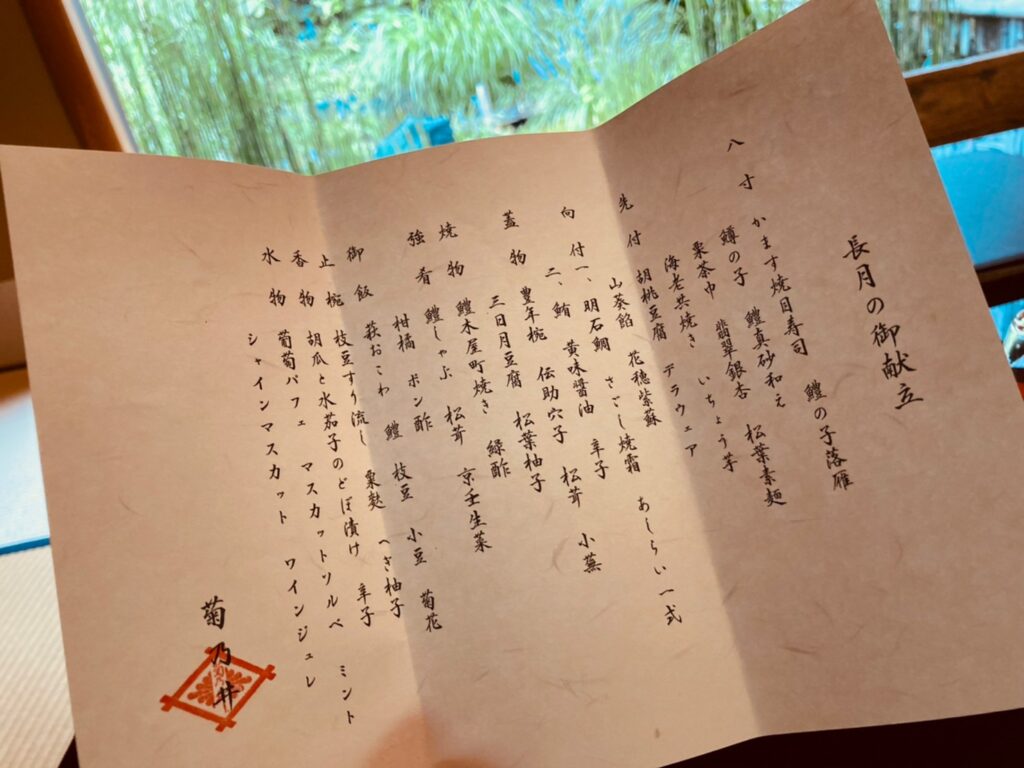 長月の御献立
八寸 かます焼目寿司 鱧の子落雁
鱒の子 鱧真砂和え 松葉素麺
栗茶巾 翡翠銀杏 いちょう芋
海老共焼き デラウェア
先付 胡桃豆腐 花穂紫蘇
山葵餡
向付 一、明石鯛 さごし焼霜 あしらい一式
二、鮪 黄味醤油 辛子
蓋物 豊年椀 伝助穴子 松茸 小蕪
三日月豆腐 松葉柚子
焼物 鱧木屋町焼き 緑酢
強肴 鱧しゃぶ 松茸 京壬生菜
柑橘 ポン酢
御飯 萩おこわ 鱧 枝豆 小豆 菊花
止椀 枝豆すり流し 粟麩 へぎ柚子
香物 胡瓜と水茄子のどぼ漬け 辛子
水物 葡萄パフェ マスカットソルベ ミント
シャインマスカット ワインジュレ
菊乃井